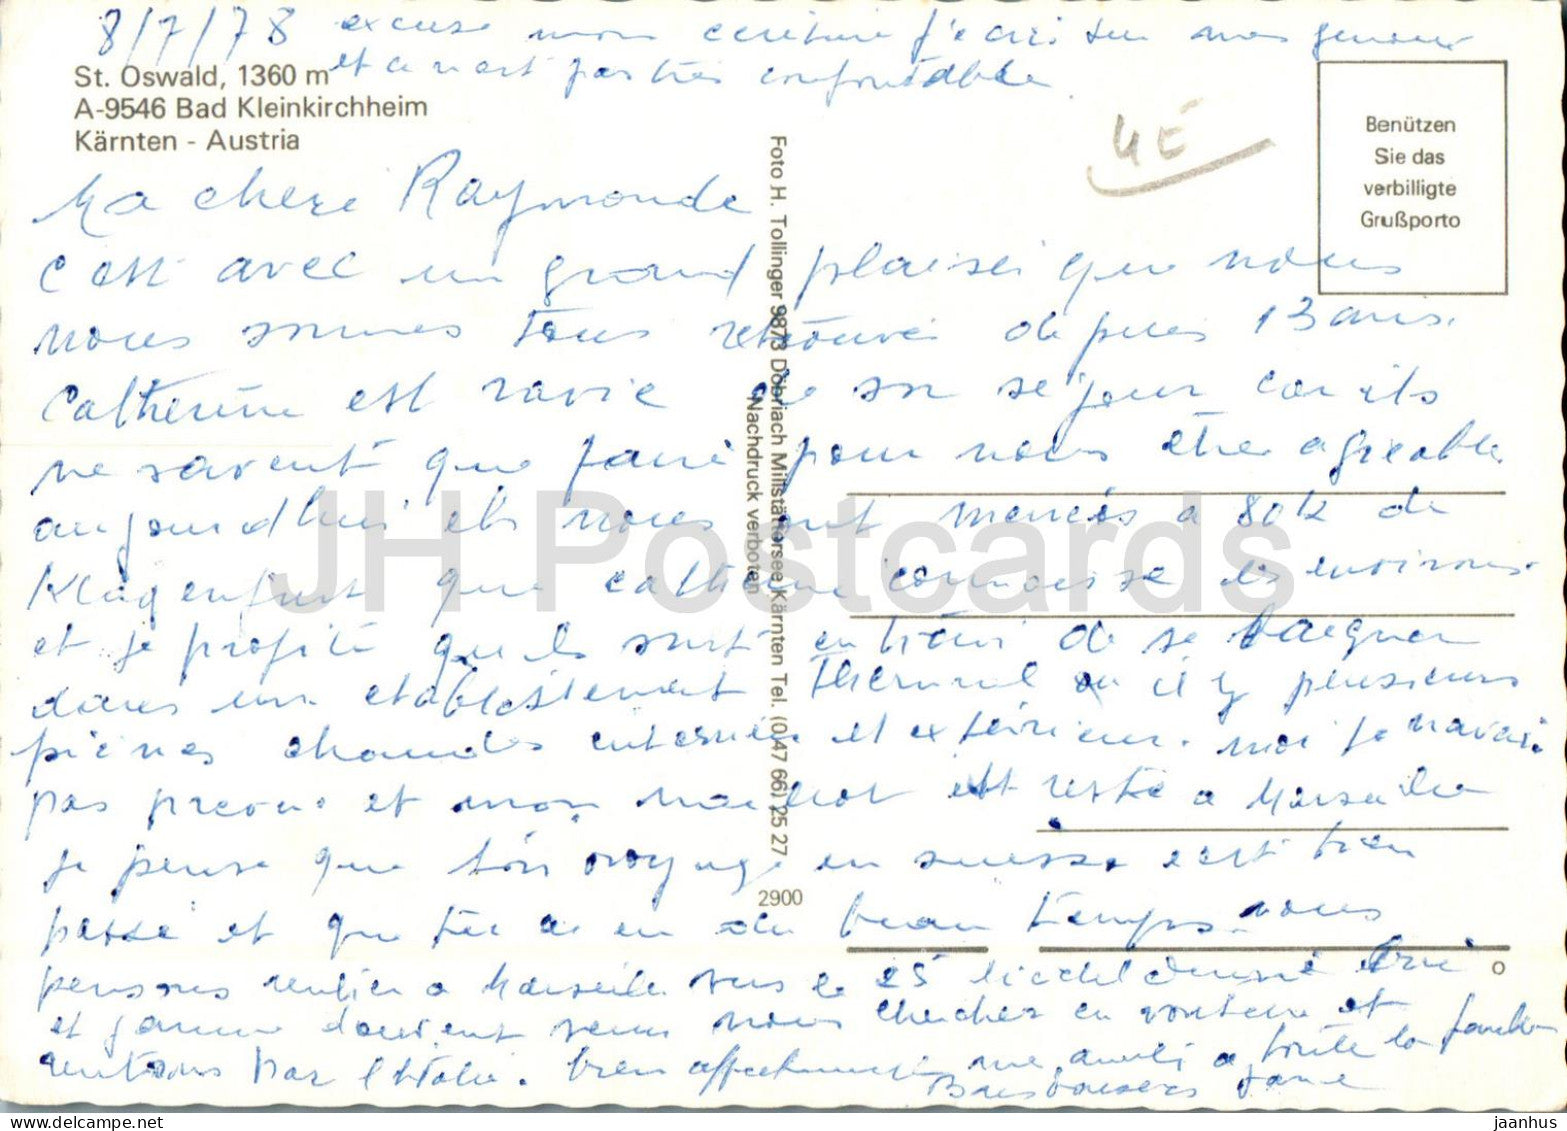 8/7/78 excuse mon écriture j'écris sur mes genoux
et ce n'est pas très confortable.
St. Oswald, 1360 m
A-9546 Bad Kleinkirchheim
Kärnten - Austria
4E
Benützen
Sie das
verbilligte
Grußporto
Ma chere Raymonde
c'est avec un grand plaisir que nous
nous sommes tous retrouvés depuis 13 ans.
Catherine est ravie de son sejour car ils
ne savent que faire pour nous être agréable
aujourdhui ils nous ont menés a 80 k de
Klagenfurt que catherine connaisse les environs
et je profite qu'ils sont en train de se baigner
dans un etablissement thermal ou il y plusieurs
picines chaudes interieur et extérieur. moi je n'avais
pas prévu et mon maillot est resté a Marseille
je pense que ton voyage en suisse s'est bien
passé et que tu as eu du beau temps. nous
pensons rentrer a Marseille vers le 25
et doivent venir nous chercher en voiture et
rentrons par l'Italie. bien affectueusement a toute la famille
Bons baisers
Foto H. Tollinger 9873 Döbriach Millstättersee Kärnten Tel. (0 47 66) 25 27
Nachdruck verboten
2900
JH Postcards
delcampe.net
jaanhus